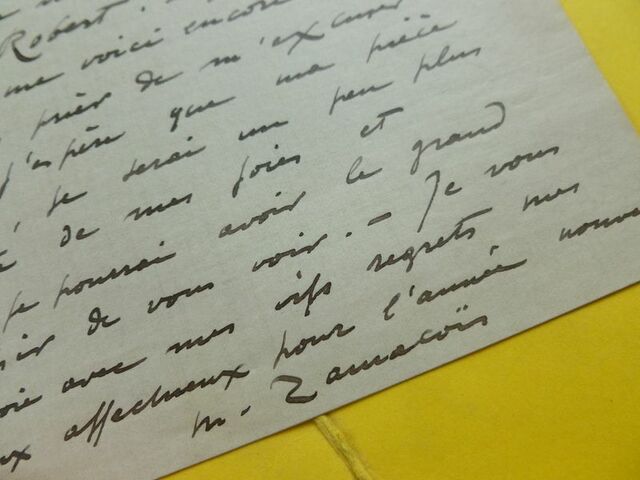 Robert.
me voici encore
prier de m'excuser
j'espère que ma pièce
je serai un peu plus
de mes joies et
je pourrai avoir le grand
sir de vous voir. - Je vous
oie avec mes vifs regrets mes
ux affectueux pour l'année nouve
M. Zamacoïs